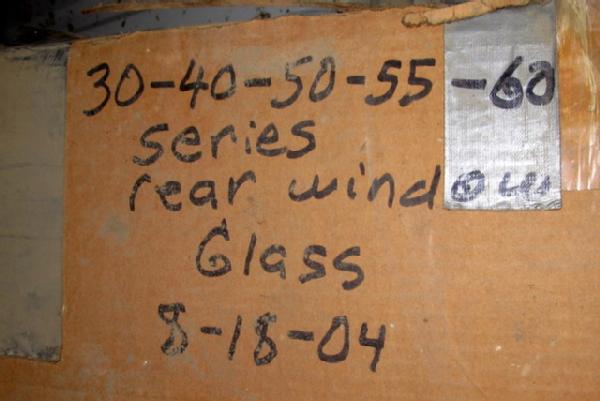 30-40-50-55-60
series
rear window
Glass
8-18-04